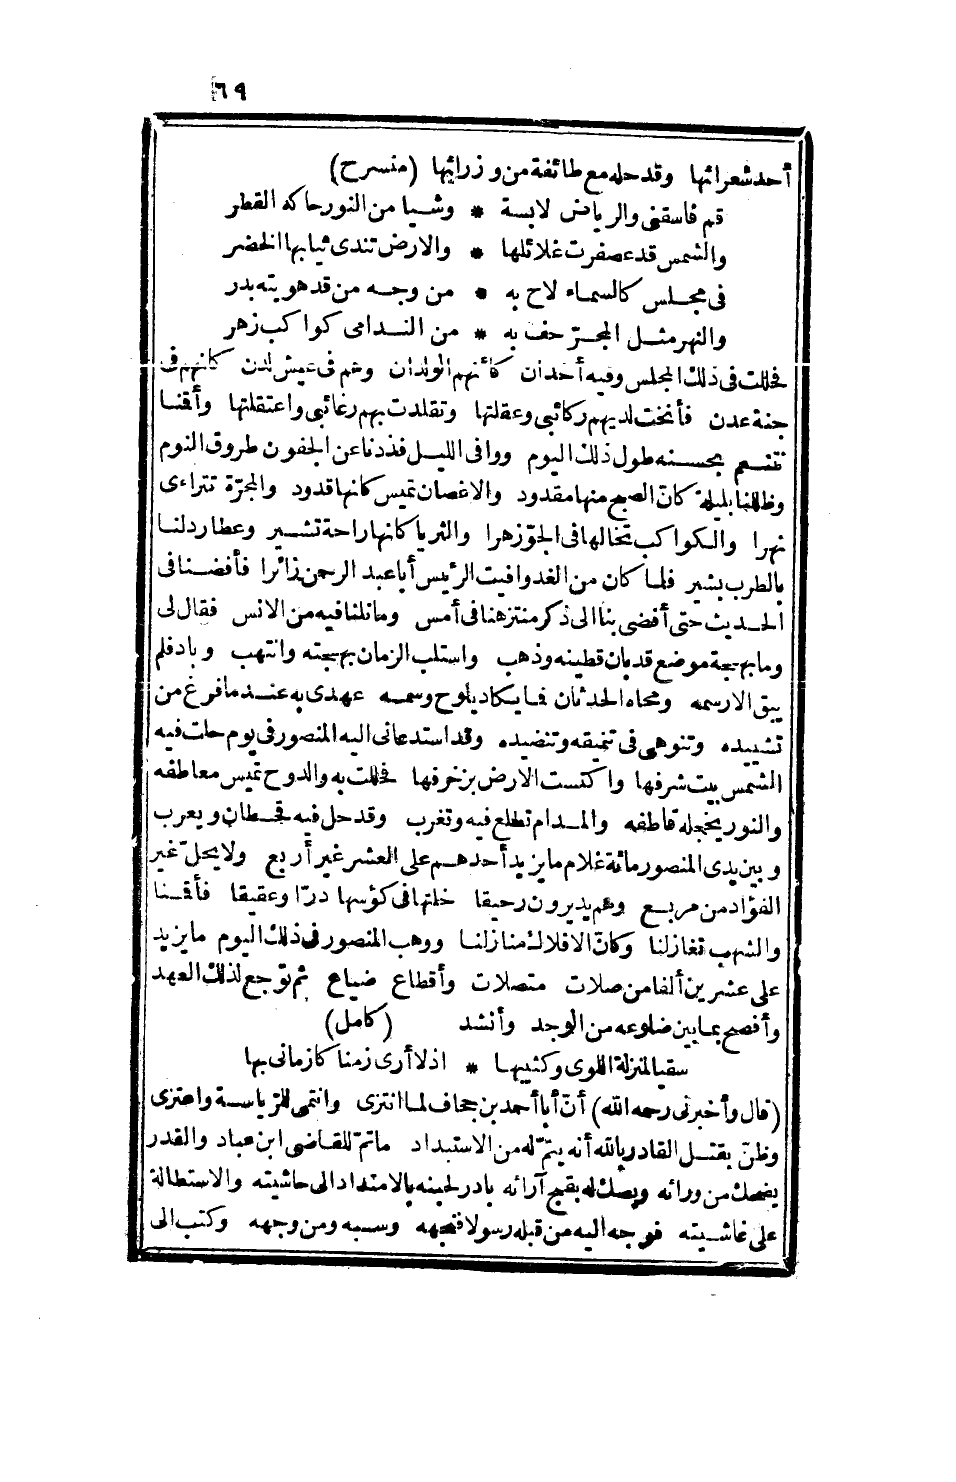 ٦٩
أحد شعرائها وقد حله مع طائفة من وزرائها (منسرح)
قم فاسقنى والرياض لابسة * وشيا من النور حاكه القطر
والشمس قد عصفرت غلائلها * والارض تندى ثيابها الخضر
فى مجلس كالسماء لاح به * من وجه من قد هويته بدر
والنهر مثل المجرّ حف به * من الندامى كواكب زهر
فحللت فى ذلك المجلس وفيه أخدان كأنهم الولدان وهم فى عيش لدن كانهم فى
جنة عدن فأنخت لديهم ركائبى وعقلتها وتقلدت بهم رغائبى واعتقلتها وأقمنا
نتنعم بحسنه طول ذلك اليوم ووافى الليل فذدنا عن الجفون طروق النوم
وظللنا بليلة كانّ الصبح منها مقدود والاغصان تميس كانها قدود والمجرّة تتراءى
نهرا والكواكب تخالها فى الجوّ زهرا والثريا كانها راحة تشير وعطارد لنا
بالطرب بشير فلما كان من الغد وافيت الرئيس أبا عبد الرحمن زائرا فأفضنا فى
الحديث حتى أفضى بنا الى ذكر منتزهنا فى أمس وما نلنا فيه من الانس فقال لى
وما بهجة موضع قد بان قطينه وذهب واستلب الزمان بهجته وانتهب وباد فلم
يبق الا رسمه ومحاه الحدثان فما يكاد يلوح وسمه عهدى به عند ما فرغ من
تشييده وتنوهى فى تنميقه وتنضيده وقد استدعانى اليه المنصور فى يوم حلت فيه
الشمس بيت شرفها واكتست الارض بزخرفها فحللت به والدوح تميس معاطفه
والنور يخجله قاطفه والمدام تطلع فيه وتغرب وقد حل فيه قحطان ويعرب
وبين يدى المنصور مائة غلام ما يزيد أحدهم على العشر غير أربع ولا يحل غير
الفؤاد من مربع وهم يديرون رحيقا خلتها فى كؤسها درّا وعقيقا فأقمنا
والشهب تغازلنا وكانّ الافلاك منازلنا ووهب المنصور فى ذلك اليوم ما يزيد
على عشرين ألفا من صلات متصلات وأقطاع ضياع ثم توجع لذلك العهد
وأفصح بما بين ضلوعه من الوجد وأنشد (كامل)
سقيا لمنزلة اللوى وكثيبها * اذ لا أرى زمنا كازمانى بها
(قال وأخبرنى رحمه الله) أنّ أبا أحمد بن جحاف لما انتزى وانتمى للرّياسة واعتزى
وظنّ بقتل القادر بالله أنه يتمّ له من الاستبداد ماتمّ للقاضى ابن عباد والقدر
يضحك من ورائه ويصك له بقبح آرائه بادر لحينه بالامتداد الى حاشيته والاستطالة
على غاشيته فوجه اليه من قبله رسولا فنجهه وسببه ومن وجهه وكتب الى